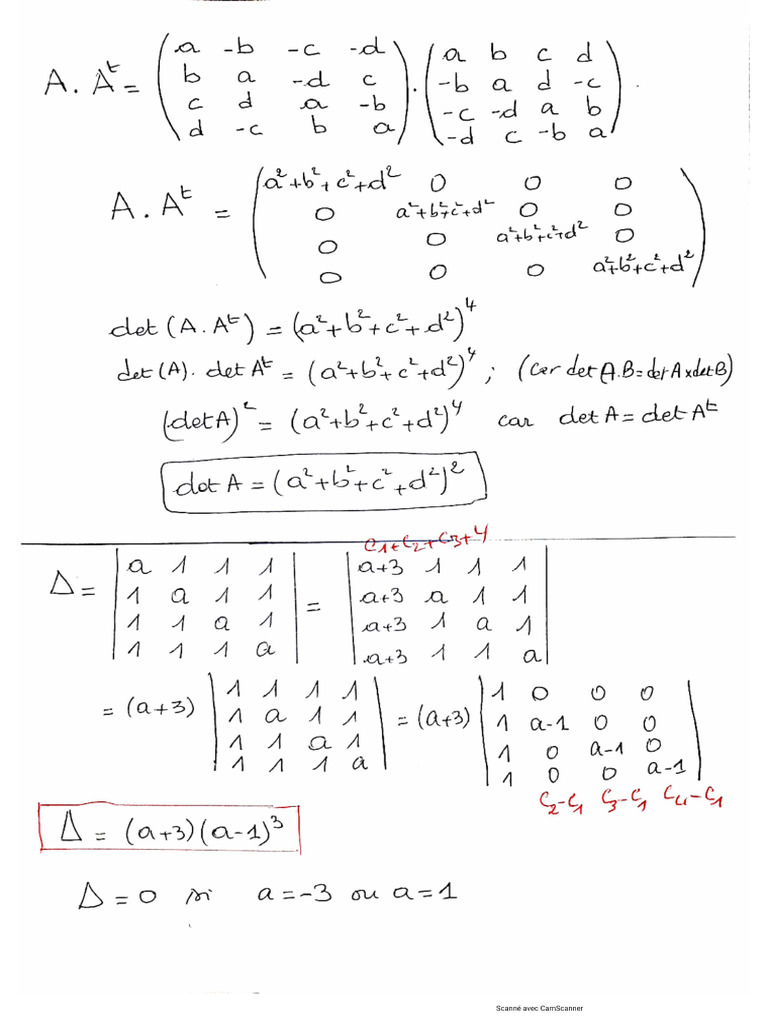 A . Aᵗ = ( a -b -c -d ; b a -d c ; c d a -b ; d -c b a ) . ( a b c d ; -b a d -c ; -c -d a b ; -d c -b a ) .
A . Aᵗ = ( a²+b²+c²+d² 0 0 0 ; 0 a²+b²+c²+d² 0 0 ; 0 0 a²+b²+c²+d² 0 ; 0 0 0 a²+b²+c²+d² )
det (A. Aᵗ) = (a²+b²+c²+d²)⁴
det (A). det Aᵗ = (a²+b²+c²+d²)⁴ ; (Car det A.B = det A x det B)
(det A)² = (a²+b²+c²+d²)⁴ car det A = det Aᵗ
det A = (a²+b²+c²+d²)²
C1+C2+C3+4
Δ = | a 1 1 1 ; 1 a 1 1 ; 1 1 a 1 ; 1 1 1 a | = | a+3 1 1 1 ; a+3 a 1 1 ; a+3 1 a 1 ; a+3 1 1 a |
= (a+3) | 1 1 1 1 ; 1 a 1 1 ; 1 1 a 1 ; 1 1 1 a | = (a+3) | 1 0 0 0 ; 1 a-1 0 0 ; 1 0 a-1 0 ; 1 0 0 a-1 |
C2-C1 C3-C1 C4-C1
Δ = (a+3)(a-1)³
Δ = 0 si a = -3 ou a = 1
Scanné avec CamScanner